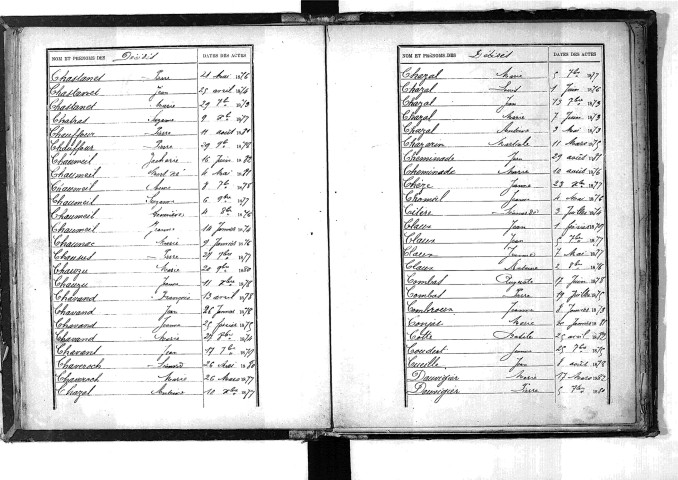 NOM ET PRÉNOMS DES Décédés DATES DES ACTES
Chastanet Pierre 21 Mai 1876
Chastanet Jean 25 avril 1874
Chastanet Marie 29 7bre 1873
Chatras Suzanne 9 Xbre 1877
Chauffour Pierre 11 août 1881
Chauffour Pierre 29 9bre 1878
Chaumeil Zacharie 16 Juin 1882
Chaumeil 4 Mai 1881
Chaumeil 8 7bre 1878
Chaumeil Suzanne 6 9bre 1877
Chaumeil Geneviève 4 8bre 1876
Chaumeil Jeanne 10 Janvier 1874
Chaunac Marie 9 Janvier 1876
Pierre 27 9bre 1877
Chauzu Marie 20 9bre 1880
Chauzu Jeanne 11 Xbre 1878
Chavand François 13 avril 1878
Chavand Jean 26 Janvier 1878
Chavand Jeanne 25 février 1875
Chavand Marie 27 8bre 1874
Chavant Jean 17 7bre 1879
Chaveroch Léonard 26 Mai 1878
Chaveroch Marie 26 Mars 1877
Chazal Antoine 10 Xbre 1877
NOM ET PRÉNOMS DES Décédés DATES DES ACTES
Chazal Marie 5 7bre 1877
Chazal Louis 1 Juin 1876
Chazal Jean 13 7bre 1873
Chazal Marie 7 Juin 1873
Chazal Antoine 3 Mai 1873
Martiale 11 Mars 1875
Cheminade Jean 29 août 1881
Cheminade Marie 10 août 1876
Chèze Jeanne 23 Xbre 1877
Jeanne 4 Mai 1876
3 Juillet 1874
Claux Jean 1 février 1879
Claux Jean 5 7bre 1877
Claux 7 Mai 1877
Claux Antoine 2 8bre 1876
Combas 17 Juin 1878
Combas Pierre 19 Juillet 1875
Combroux Jeanne 8 Janvier 1878
Marie 20 Janvier 1881
Cotte 25 avril 1882
Coudert Jeanne 25 7bre 1875
Cueille Jean 8 août 1878
Dauvigier Marie 17 Mars 1882
Dauvigier Pierre 5 7bre 1880